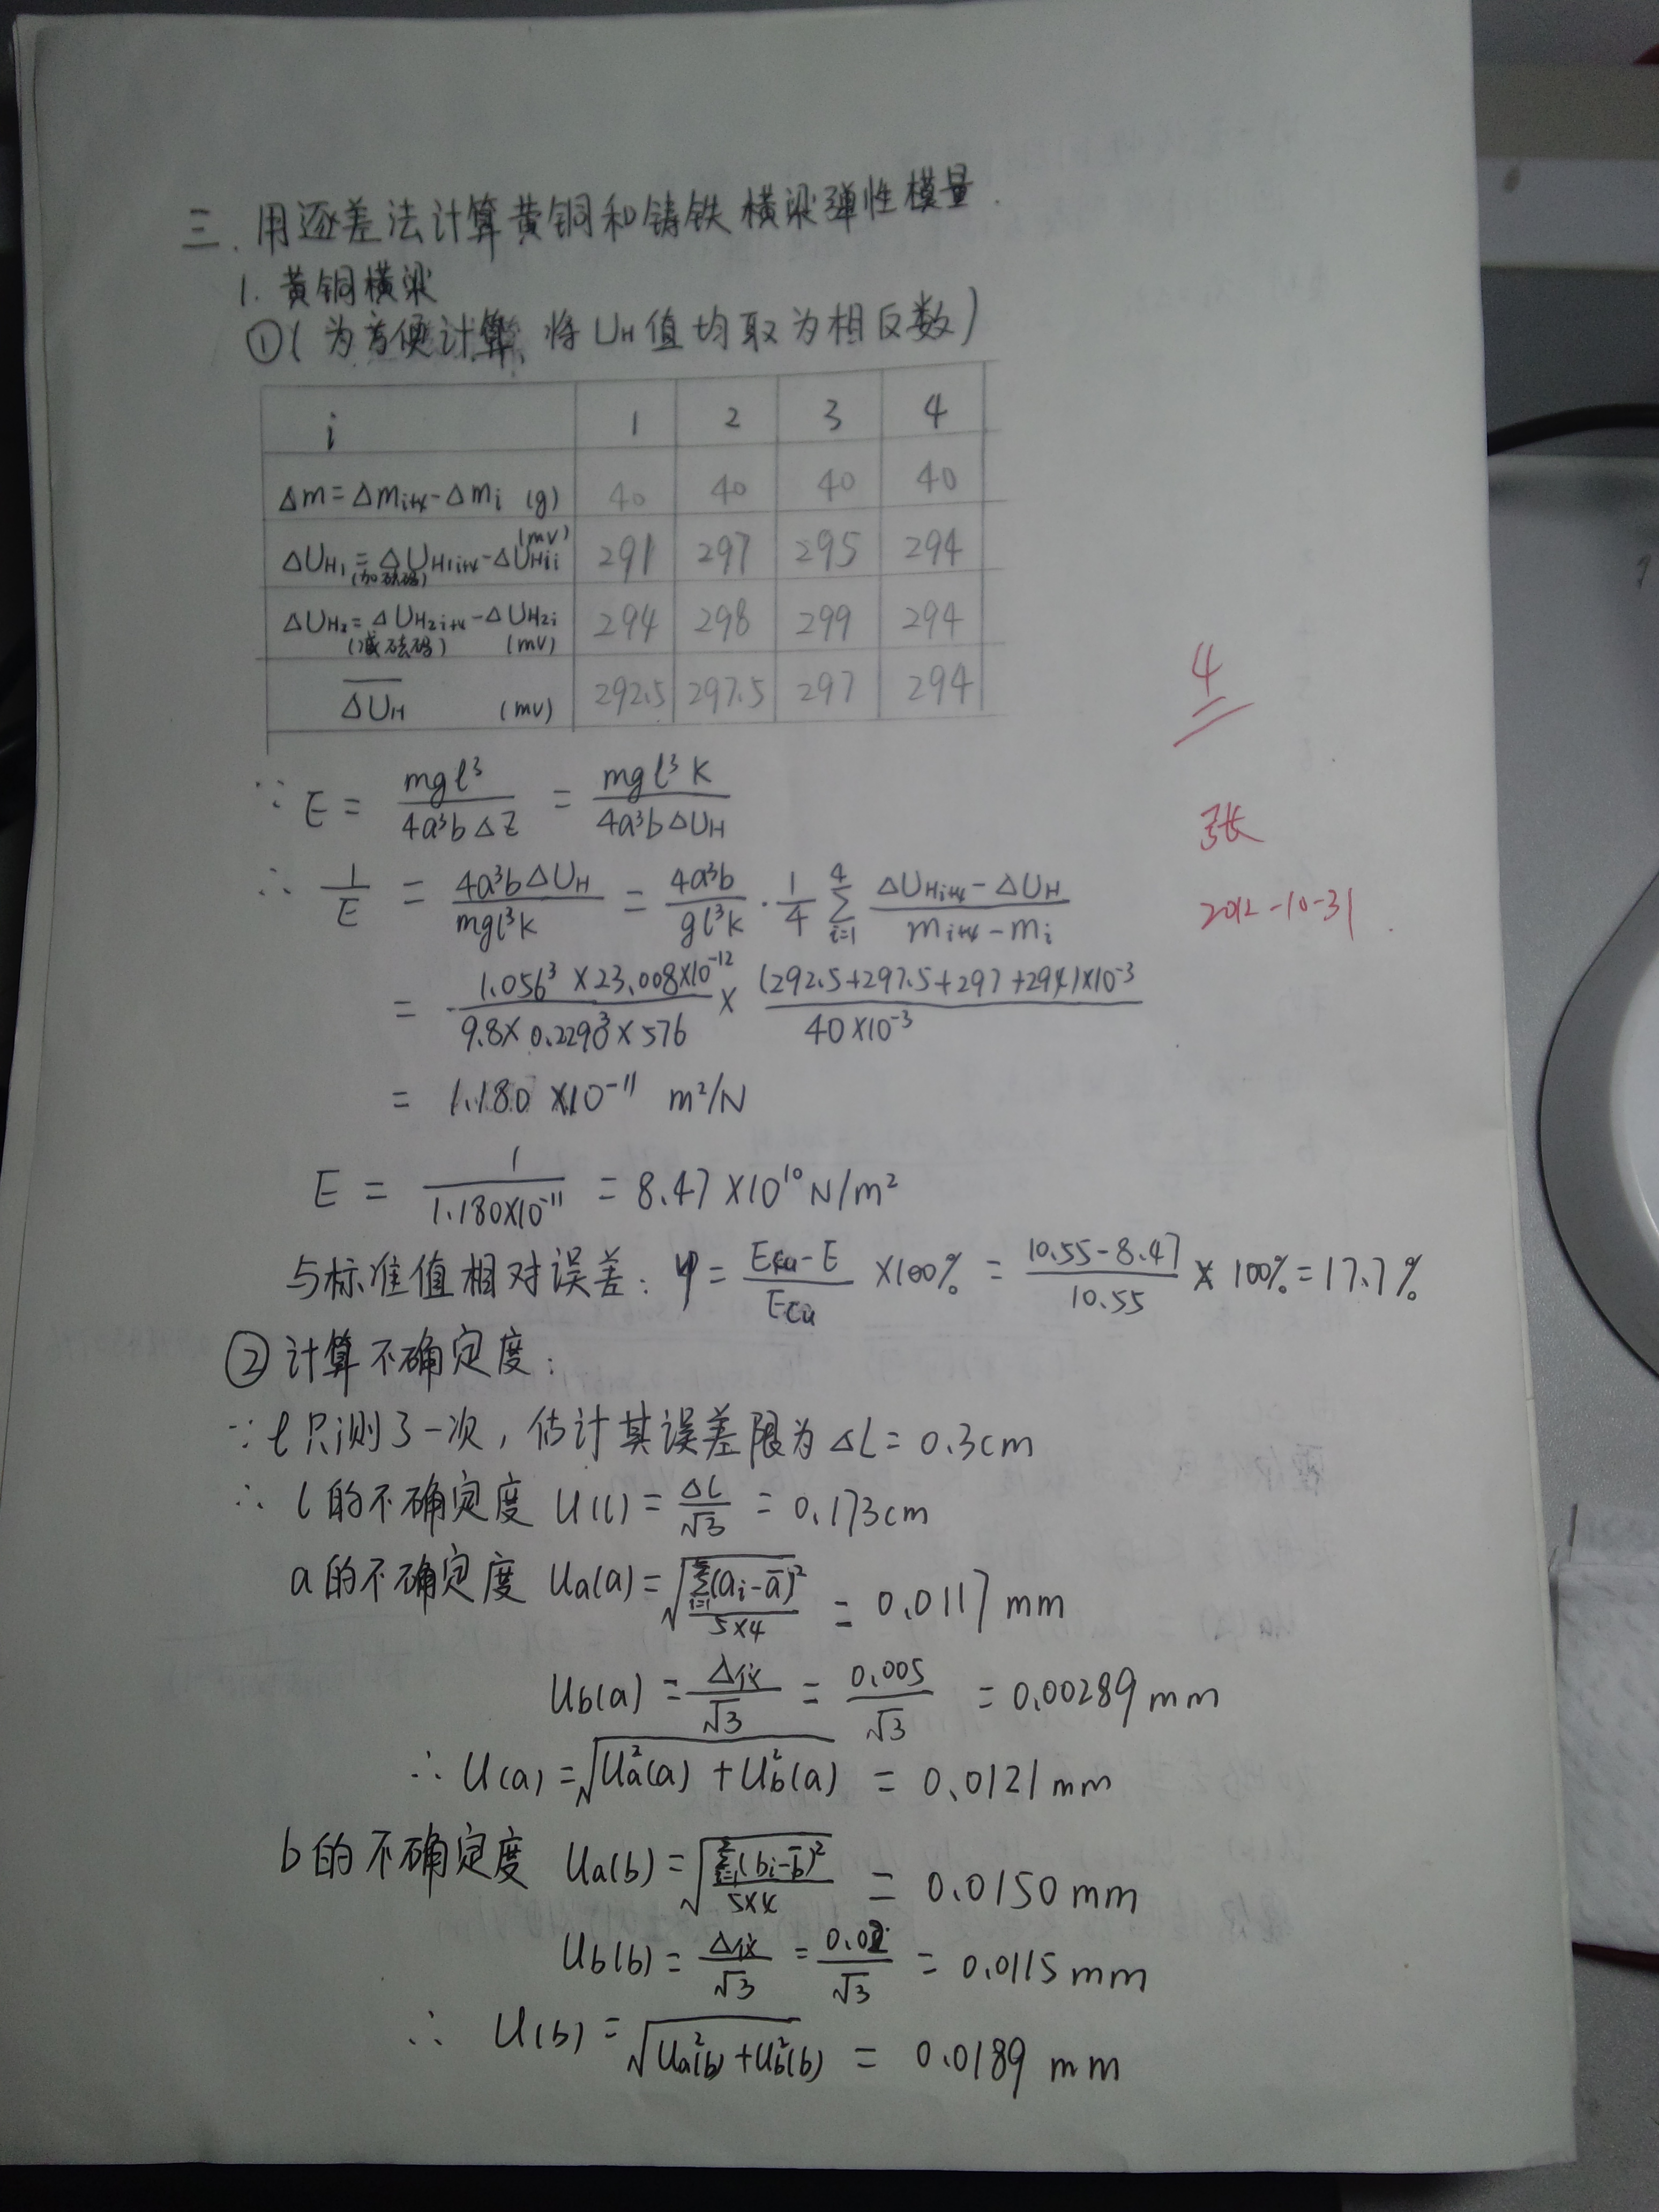 三. 用逐差法计算黄铜和铸铁横梁弹性模量.
1. 黄铜横梁
①(为方便计算, 将 UH 值均取为相反数)
i 1 2 3 4
Δm = Δmi+4 - Δmi (g) 40 40 40 40
ΔUH1 = ΔUH1i+4 - ΔUH1i (mV) (加砝码) 291 297 295 294
ΔUH2 = ΔUH2i+4 - ΔUH2i (减砝码) (mV) 294 298 299 294
\overline{ΔUH} (mV) 292.5 297.5 297 294
4
∵ E = mgl³/(4a³bΔZ) = mgl³K/(4a³bΔUH)
张
∴ 1/E = 4a³bΔUH/(mgl³K) = 4a³b/(gl³K) · 1/4 Σ_{i=1}^{4} (ΔUHi+4 - ΔUH)/(mi+4 - mi)
2012-10-31
= (1.056³ × 23.008×10⁻¹²)/(9.8 × 0.2290³ × 576) × ((292.5+297.5+297+294)×10⁻³)/(40×10⁻³)
= 1.180 ×10⁻¹¹ m²/N
E = 1/(1.180×10⁻¹¹) = 8.47 ×10¹⁰ N/m²
与标准值相对误差: φ = (Ecu - E)/Ecu ×100% = (10.55-8.47)/10.55 × 100% = 17.7%
② 计算不确定度:
∵ l只测了一次, 估计其误差限为 ΔL = 0.3cm
∴ l的不确定度 U(l) = ΔL/√3 = 0.173cm
a的不确定度 Ua(a) = √(Σ_{i=1}^{5}(ai-\overline{a})²/(5×4)) = 0.0117 mm
Ub(a) = Δ仪/√3 = 0.005/√3 = 0.00289 mm
∴ U(a) = √(Ua²(a) + Ub²(a)) = 0.0121 mm
b的不确定度 Ua(b) = √(Σ_{i=1}(bi-\overline{b})²/(5×4)) = 0.0150 mm
Ub(b) = Δ仪/√3 = 0.02/√3 = 0.0115 mm
∴ U(b) = √(Ua²(b) + Ub²(b)) = 0.0189 mm